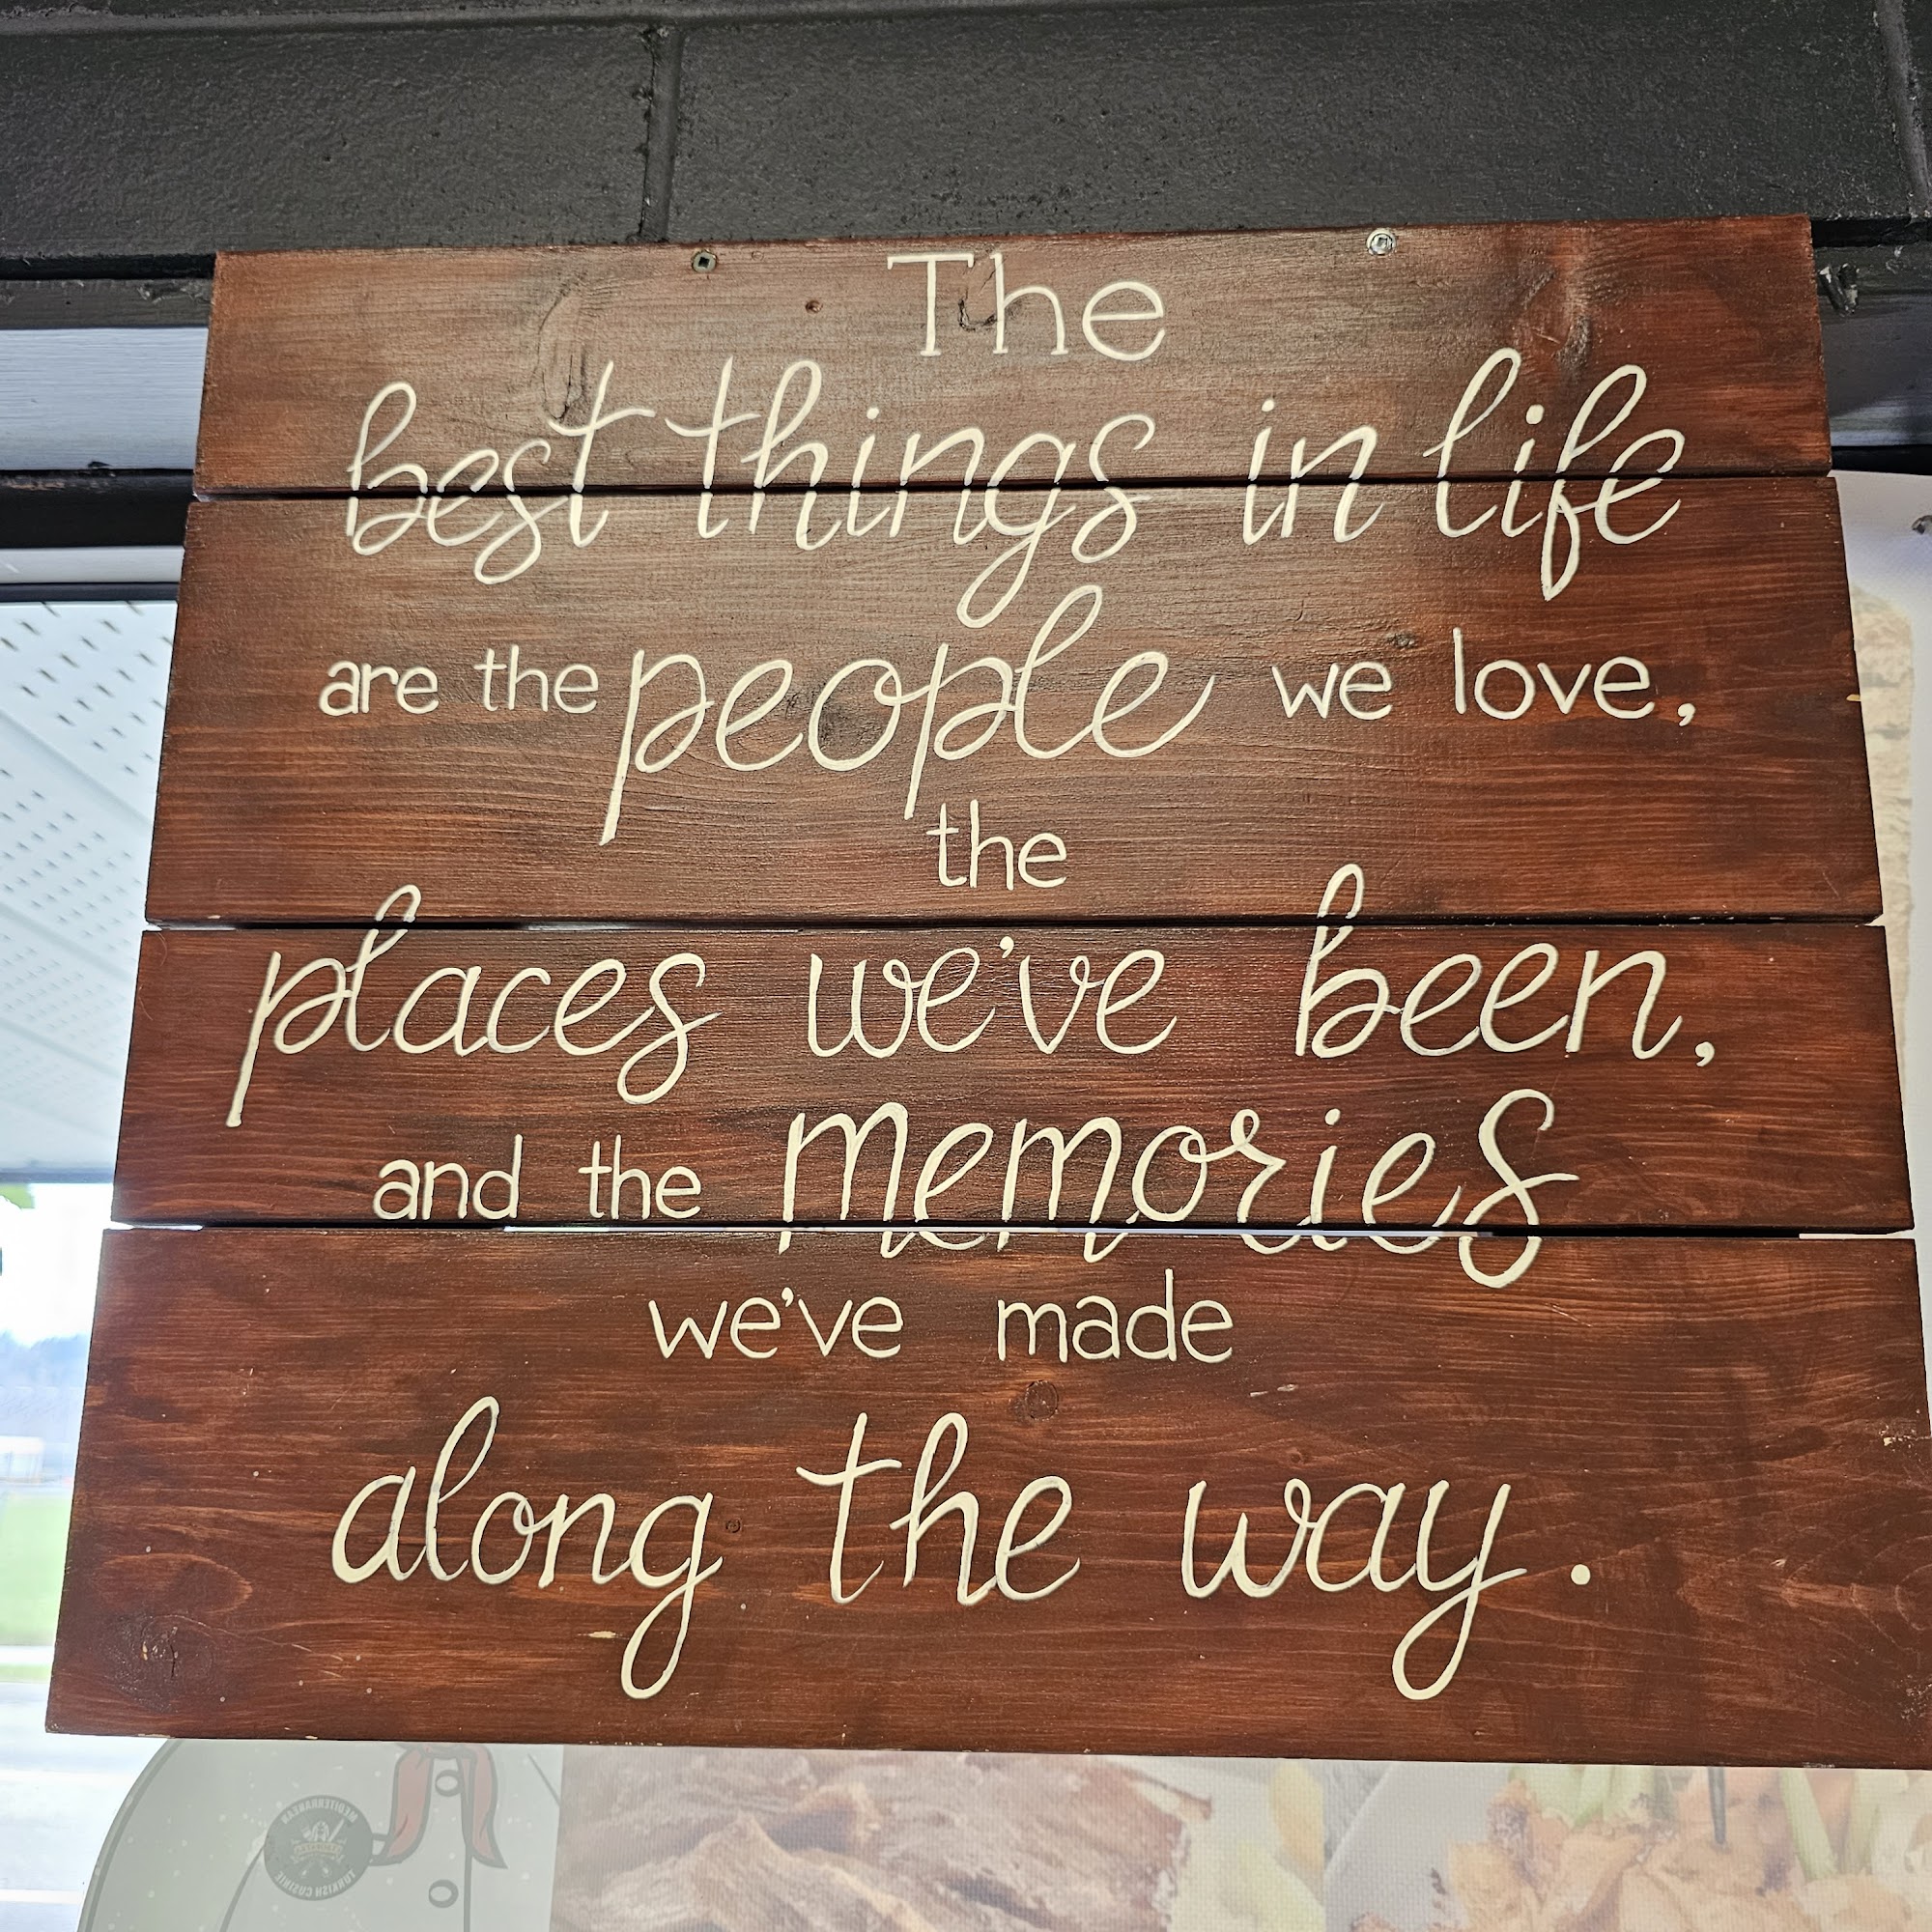 The
best things in life
are the people we love,
the
places we've been,
and the memories
we've made
along the way.
MEDITERRANEAN
TURKISH CUSINIE